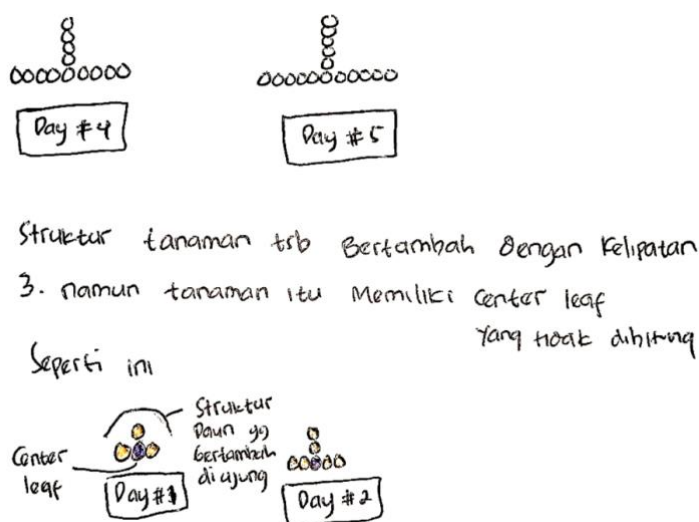 Day #4
Day #5
Struktur tanaman trb Bertambah dengan Kelipatan
3. namun tanaman itu Memiliki Center leaf
yang tidak dihitung
Seperti ini
Center
leaf
Struktur
Daun yg
bertambah
di ujung
Day #1
Day #2